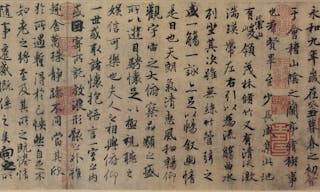 永和九年歲在癸丑暮春之初會
于會稽山陰之蘭亭脩禊事
也群賢畢至少長咸集此地
有崇山峻領茂林脩竹又有清流激
湍暎帶左右引以為流觴曲水
列坐其次雖無絲竹管弦之
盛一觴一詠亦足以暢叙幽情
是日也天朗氣清惠風和暢仰
觀宇宙之大俯察品類之盛
所以遊目騁懷足以極視聽之
娛信可樂也夫人之相與俯仰
一世或取諸懷抱悟言一室之內
或因寄所託放浪形骸之外雖
趣舍萬殊靜躁不同當其欣
於所遇暫得於己怏然自足不
知老之將至及其所之既惓情
隨事遷感慨係之矣向之